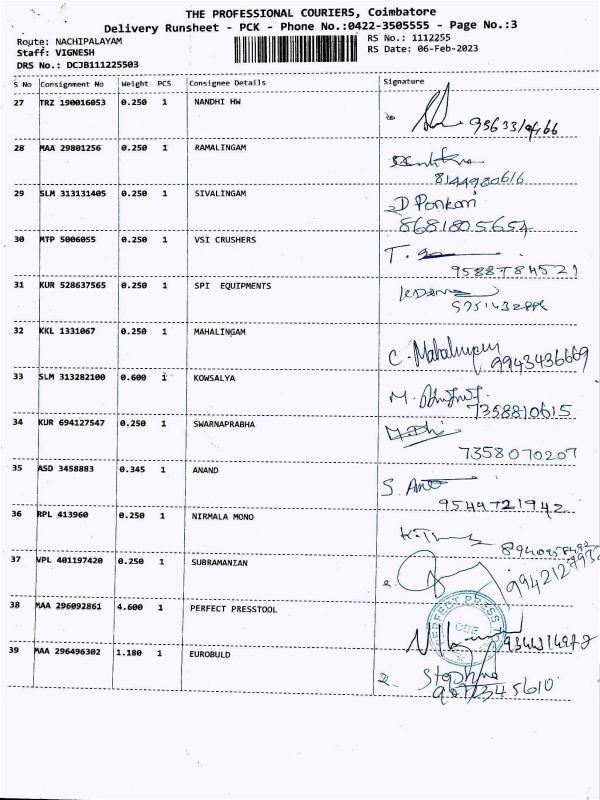 THE PROFESSIONAL COURIERS, Coimbatore
Delivery Runsheet - PCK - Phone No.:0422-3505555 - Page No.:3
Route: NACHIPALAYAM RS No.: 1112255
Staff: VIGNESH RS Date: 06-Feb-2023
DRS No.: DCJB111225503
S No Consignment No Weight PCS Consignee Details Signature
27 TRZ 190016053 0.250 1 NANDHI HW
28 MAA 29801256 0.250 1 RAMALINGAM
8144980616
29 SLM 313131405 0.250 1 SIVALINGAM D Ponkani
8681805654
30 MTP 5006055 0.250 1 VSI CRUSHERS T.
9588784521
31 KUR 528637565 0.250 1 SPI EQUIPMENTS
32 KKL 1331067 0.250 1 MAHALINGAM
C. 9943436669
33 SLM 313282100 0.600 1 KOWSALYA M.
7358810615
34 KUR 694127547 0.250 1 SWARNAPRABHA
7358070207
35 ASD 3458883 0.345 1 ANAND S.
9544721942
36 RPL 413960 0.250 1 NIRMALA MONO
37 VPL 401197420 0.250 1 SUBRAMANIAN
38 MAA 296092861 4.600 1 PERFECT PRESSTOOL PERFECT PRESS CBE
39 MAA 296496302 1.180 1 EUROBULD
2.